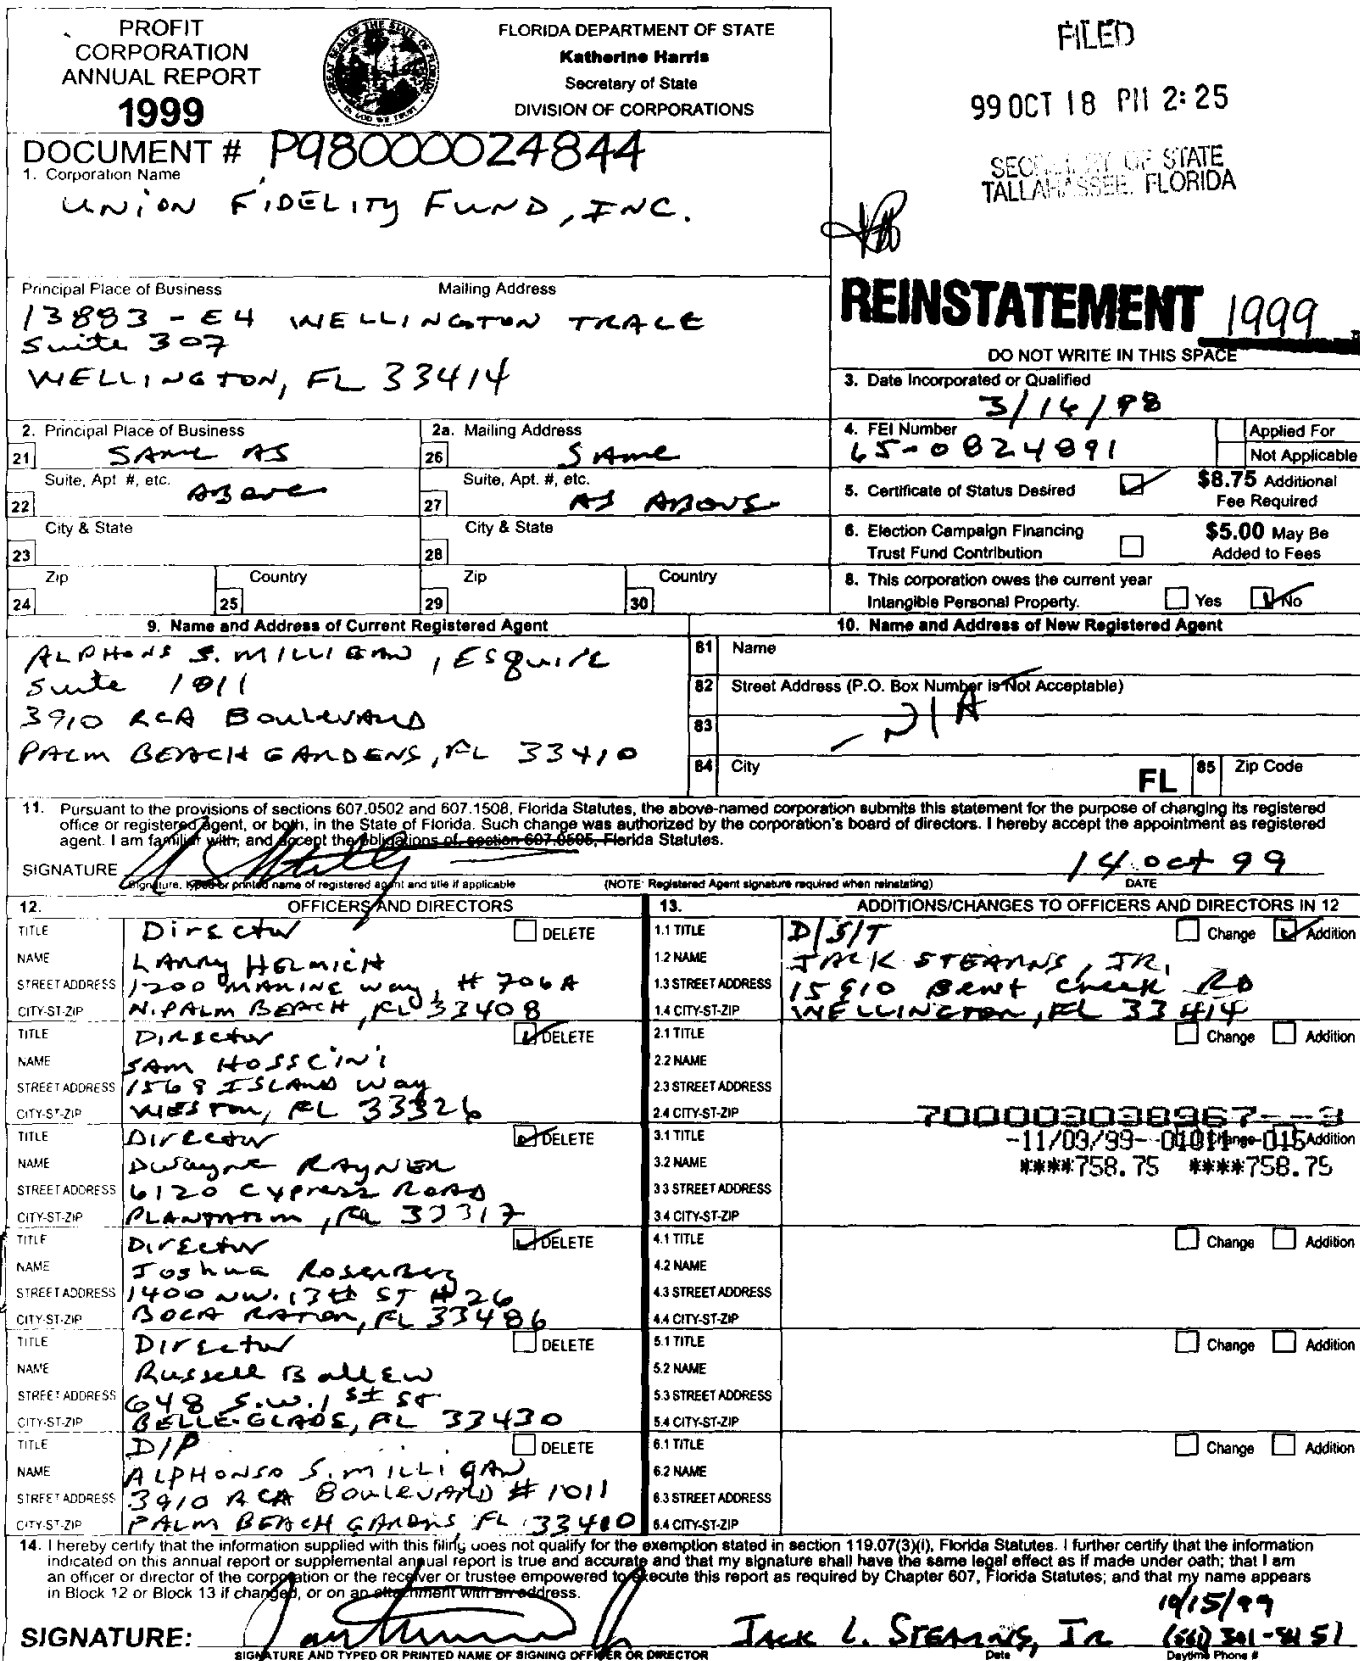 PROFIT
CORPORATION
ANNUAL REPORT
1999
FLORIDA DEPARTMENT OF STATE
Katherine Harris
Secretary of State
DIVISION OF CORPORATIONS
FILED
99 OCT 18 PM 2:25
SECRETARY OF STATE
TALLAHASSEE, FLORIDA
DOCUMENT # P98000024844
1. Corporation Name
UNION FIDELITY FUND, INC.
Principal Place of Business Mailing Address
13883 - E4 WELLINGTON TRACE
Suite 307
WELLINGTON, FL 33414
REINSTATEMENT 1999
DO NOT WRITE IN THIS SPACE
3. Date Incorporated or Qualified
3/16/98
2. Principal Place of Business
21 SAME AS
2a. Mailing Address
26 SAME
4. FEI Number
65-0824891
Applied For
Not Applicable
Suite, Apt #, etc.
22 ABOVE
Suite, Apt. #, etc.
27 AS ABOVE
5. Certificate of Status Desired
$8.75 Additional
Fee Required
City & State
23
City & State
28
6. Election Campaign Financing
Trust Fund Contribution
$5.00 May Be
Added to Fees
Zip
24
Country
25
Zip
29
Country
30
8. This corporation owes the current year
Intangible Personal Property. Yes No
9. Name and Address of Current Registered Agent
ALPHONS S. MILLIGAN, ESquire
Suite 1011
3910 RCA BOULEVARD
PALM BEACH GARDENS, FL 33410
10. Name and Address of New Registered Agent
81 Name
82 Street Address (P.O. Box Number is Not Acceptable)
83
N/A
84 City
FL
85 Zip Code
11. Pursuant to the provisions of sections 607.0502 and 607.1508, Florida Statutes, the above-named corporation submits this statement for the purpose of changing its registered
office or registered agent, or both, in the State of Florida. Such change was authorized by the corporation's board of directors. I hereby accept the appointment as registered
agent. I am familiar with, and accept the obligations of, section 607.0505, Florida Statutes.
SIGNATURE 14 Oct 99
Signature, typed or printed name of registered agent and title if applicable (NOTE: Registered Agent signature required when reinstating) DATE
12. OFFICERS AND DIRECTORS
TITLE Director DELETE
NAME LARRY HELMICH
STREET ADDRESS 1200 MARINE Way, # 706A
CITY-ST-ZIP N. PALM BEACH, FL 33408
TITLE Director DELETE
NAME SAM HOSSEINI
STREET ADDRESS 1568 ISLAND Way
CITY-ST-ZIP WESTON, FL 33326
TITLE Director DELETE
NAME Dwayne RAYNER
STREET ADDRESS 6120 Cypress ROAD
CITY-ST-ZIP PLANTATION, FL 33317
TITLE Director DELETE
NAME Joshua Rosenberg
STREET ADDRESS 1400 NW. 13th ST # 26
CITY-ST-ZIP BOCA RATON, FL 33486
TITLE Director DELETE
NAME Russell Ballew
STREET ADDRESS 648 S.W. 1st ST
CITY-ST-ZIP BELLE-GLADE, FL 33430
TITLE D/P DELETE
NAME ALPHONSO S. MILLIGAN
STREET ADDRESS 3910 RCA BOULEVARD # 1011
CITY-ST-ZIP PALM BEACH GARDNS, FL 33410
13. ADDITIONS/CHANGES TO OFFICERS AND DIRECTORS IN 12
1.1 TITLE D/S/T Change Addition
1.2 NAME JACK STEARNS, JR.
1.3 STREET ADDRESS 15910 Bent Creek RD
1.4 CITY-ST-ZIP WELLINGTON, FL 33414
2.1 TITLE Change Addition
2.2 NAME
2.3 STREET ADDRESS
2.4 CITY-ST-ZIP
700003038967--3
3.1 TITLE Change Addition
-11/09/99--01011--015
3.2 NAME
****758.75 ****758.75
3.3 STREET ADDRESS
3.4 CITY-ST-ZIP
4.1 TITLE Change Addition
4.2 NAME
4.3 STREET ADDRESS
4.4 CITY-ST-ZIP
5.1 TITLE Change Addition
5.2 NAME
5.3 STREET ADDRESS
5.4 CITY-ST-ZIP
6.1 TITLE Change Addition
6.2 NAME
6.3 STREET ADDRESS
6.4 CITY-ST-ZIP
14. I hereby certify that the information supplied with this filing does not qualify for the exemption stated in section 119.07(3)(i), Florida Statutes. I further certify that the information
indicated on this annual report or supplemental annual report is true and accurate and that my signature shall have the same legal effect as if made under oath; that I am
an officer or director of the corporation or the receiver or trustee empowered to execute this report as required by Chapter 607, Florida Statutes; and that my name appears
in Block 12 or Block 13 if changed, or on an attachment with an address.
10/15/99
SIGNATURE: JACK L. STEARNS, JR (561)
SIGNATURE AND TYPED OR PRINTED NAME OF SIGNING OFFICER OR DIRECTOR Date Daytime Phone #